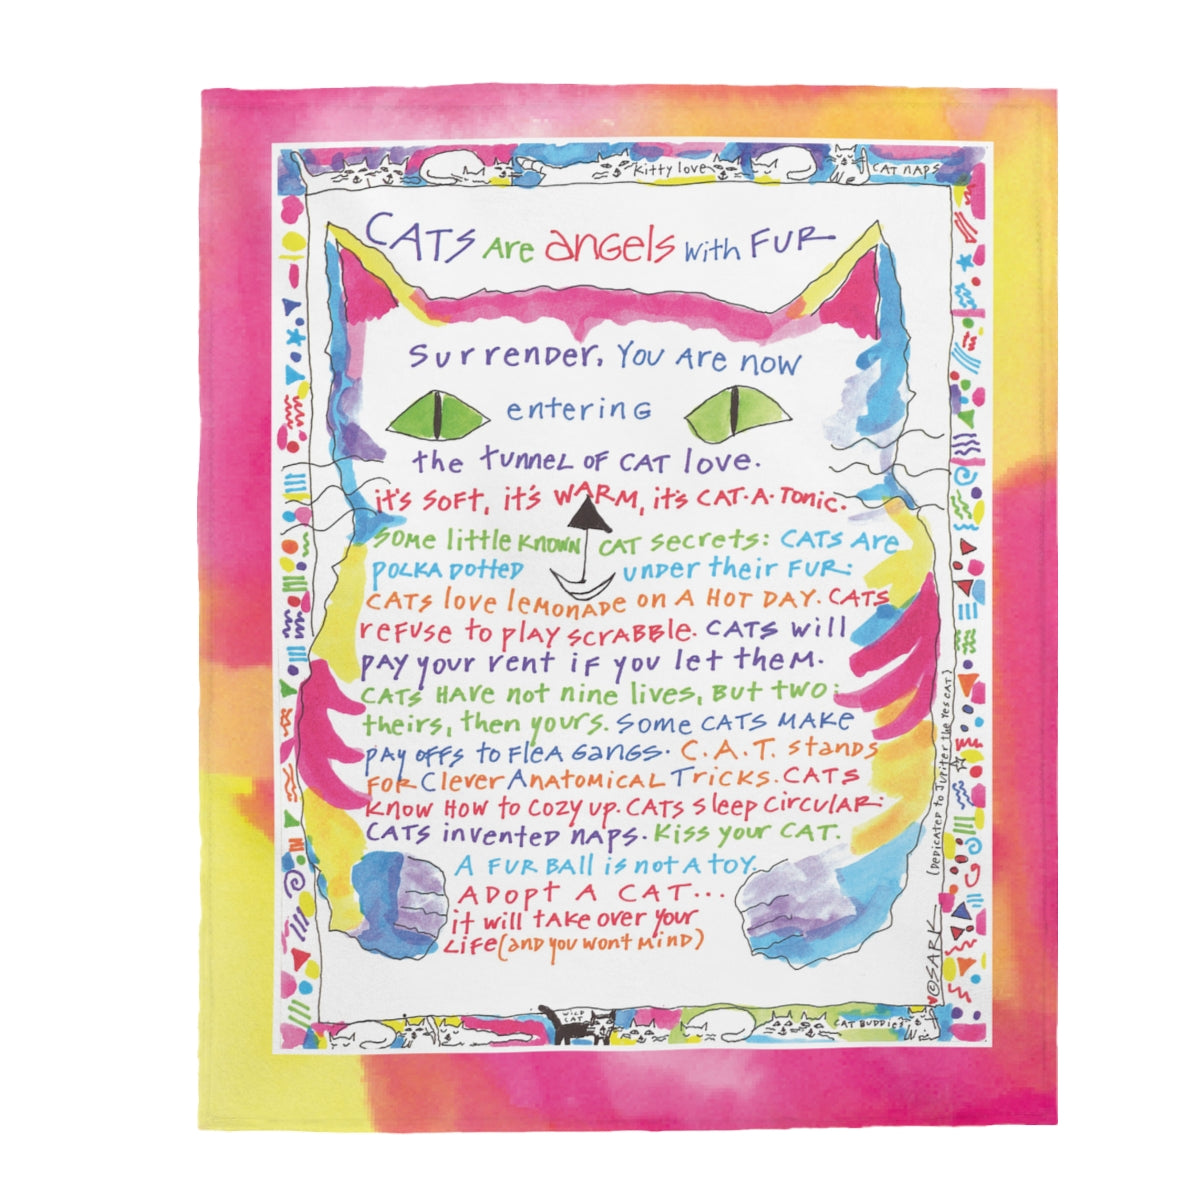 Kitty love
CAT NAPS
CATS Are angels with FUR
Surrender. You Are now
entering
the tunnel of CAT love.
it's soft, it's WARM, it's CAT·A·Tonic.
Some little known CAT secrets: CATS Are
POLKA DOTTED under their FUR:
CATS love lemonade on A HOT DAY. CATS
refuse to play scrabble. CATS will
pay your rent if you let them.
CATS HAVE not nine lives, But two:
theirs, then yours. Some CATS MAKE
pay offs to flea gangs. C.A.T. stands
FOR Clever Anatomical Tricks. CATS
know how to cozy up. CATS sleep circular:
CATS invented naps. Kiss your CAT.
A FUR BALL is not A toy.
ADOPT A CAT...
it will take over your
Life (and you wont mind)
(Dedicated to Jupiter the Yes cat)
©SARK
WILD
CAT
CAT BUDDIES